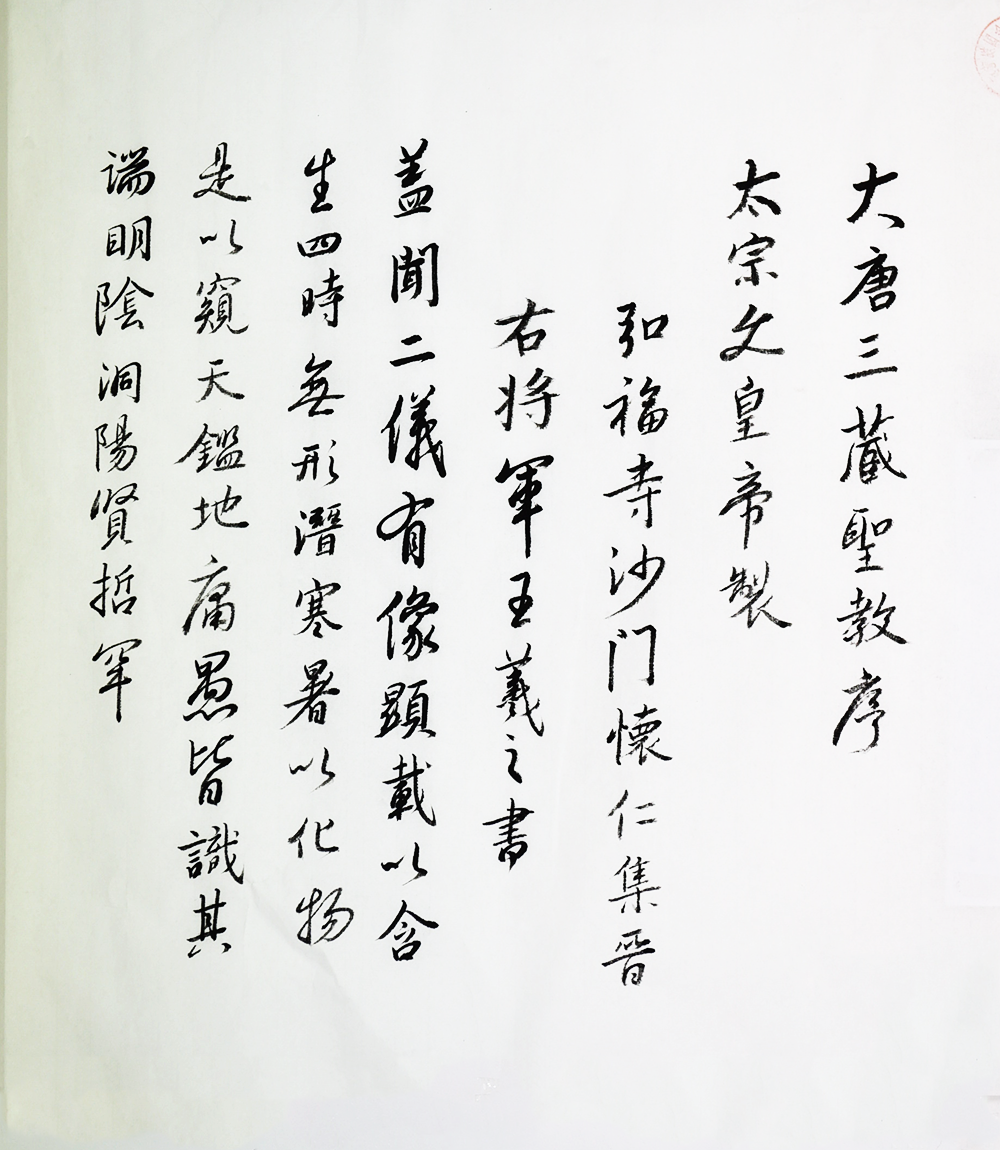 大唐三藏聖教序
太宗文皇帝製
弘福寺沙门懷仁集晋
右将軍王羲之書
蓋聞二儀有像顯載以含
生四時無形潛寒暑以化物
是以窺天鑑地庸愚皆識其
端明陰洞陽賢哲罕